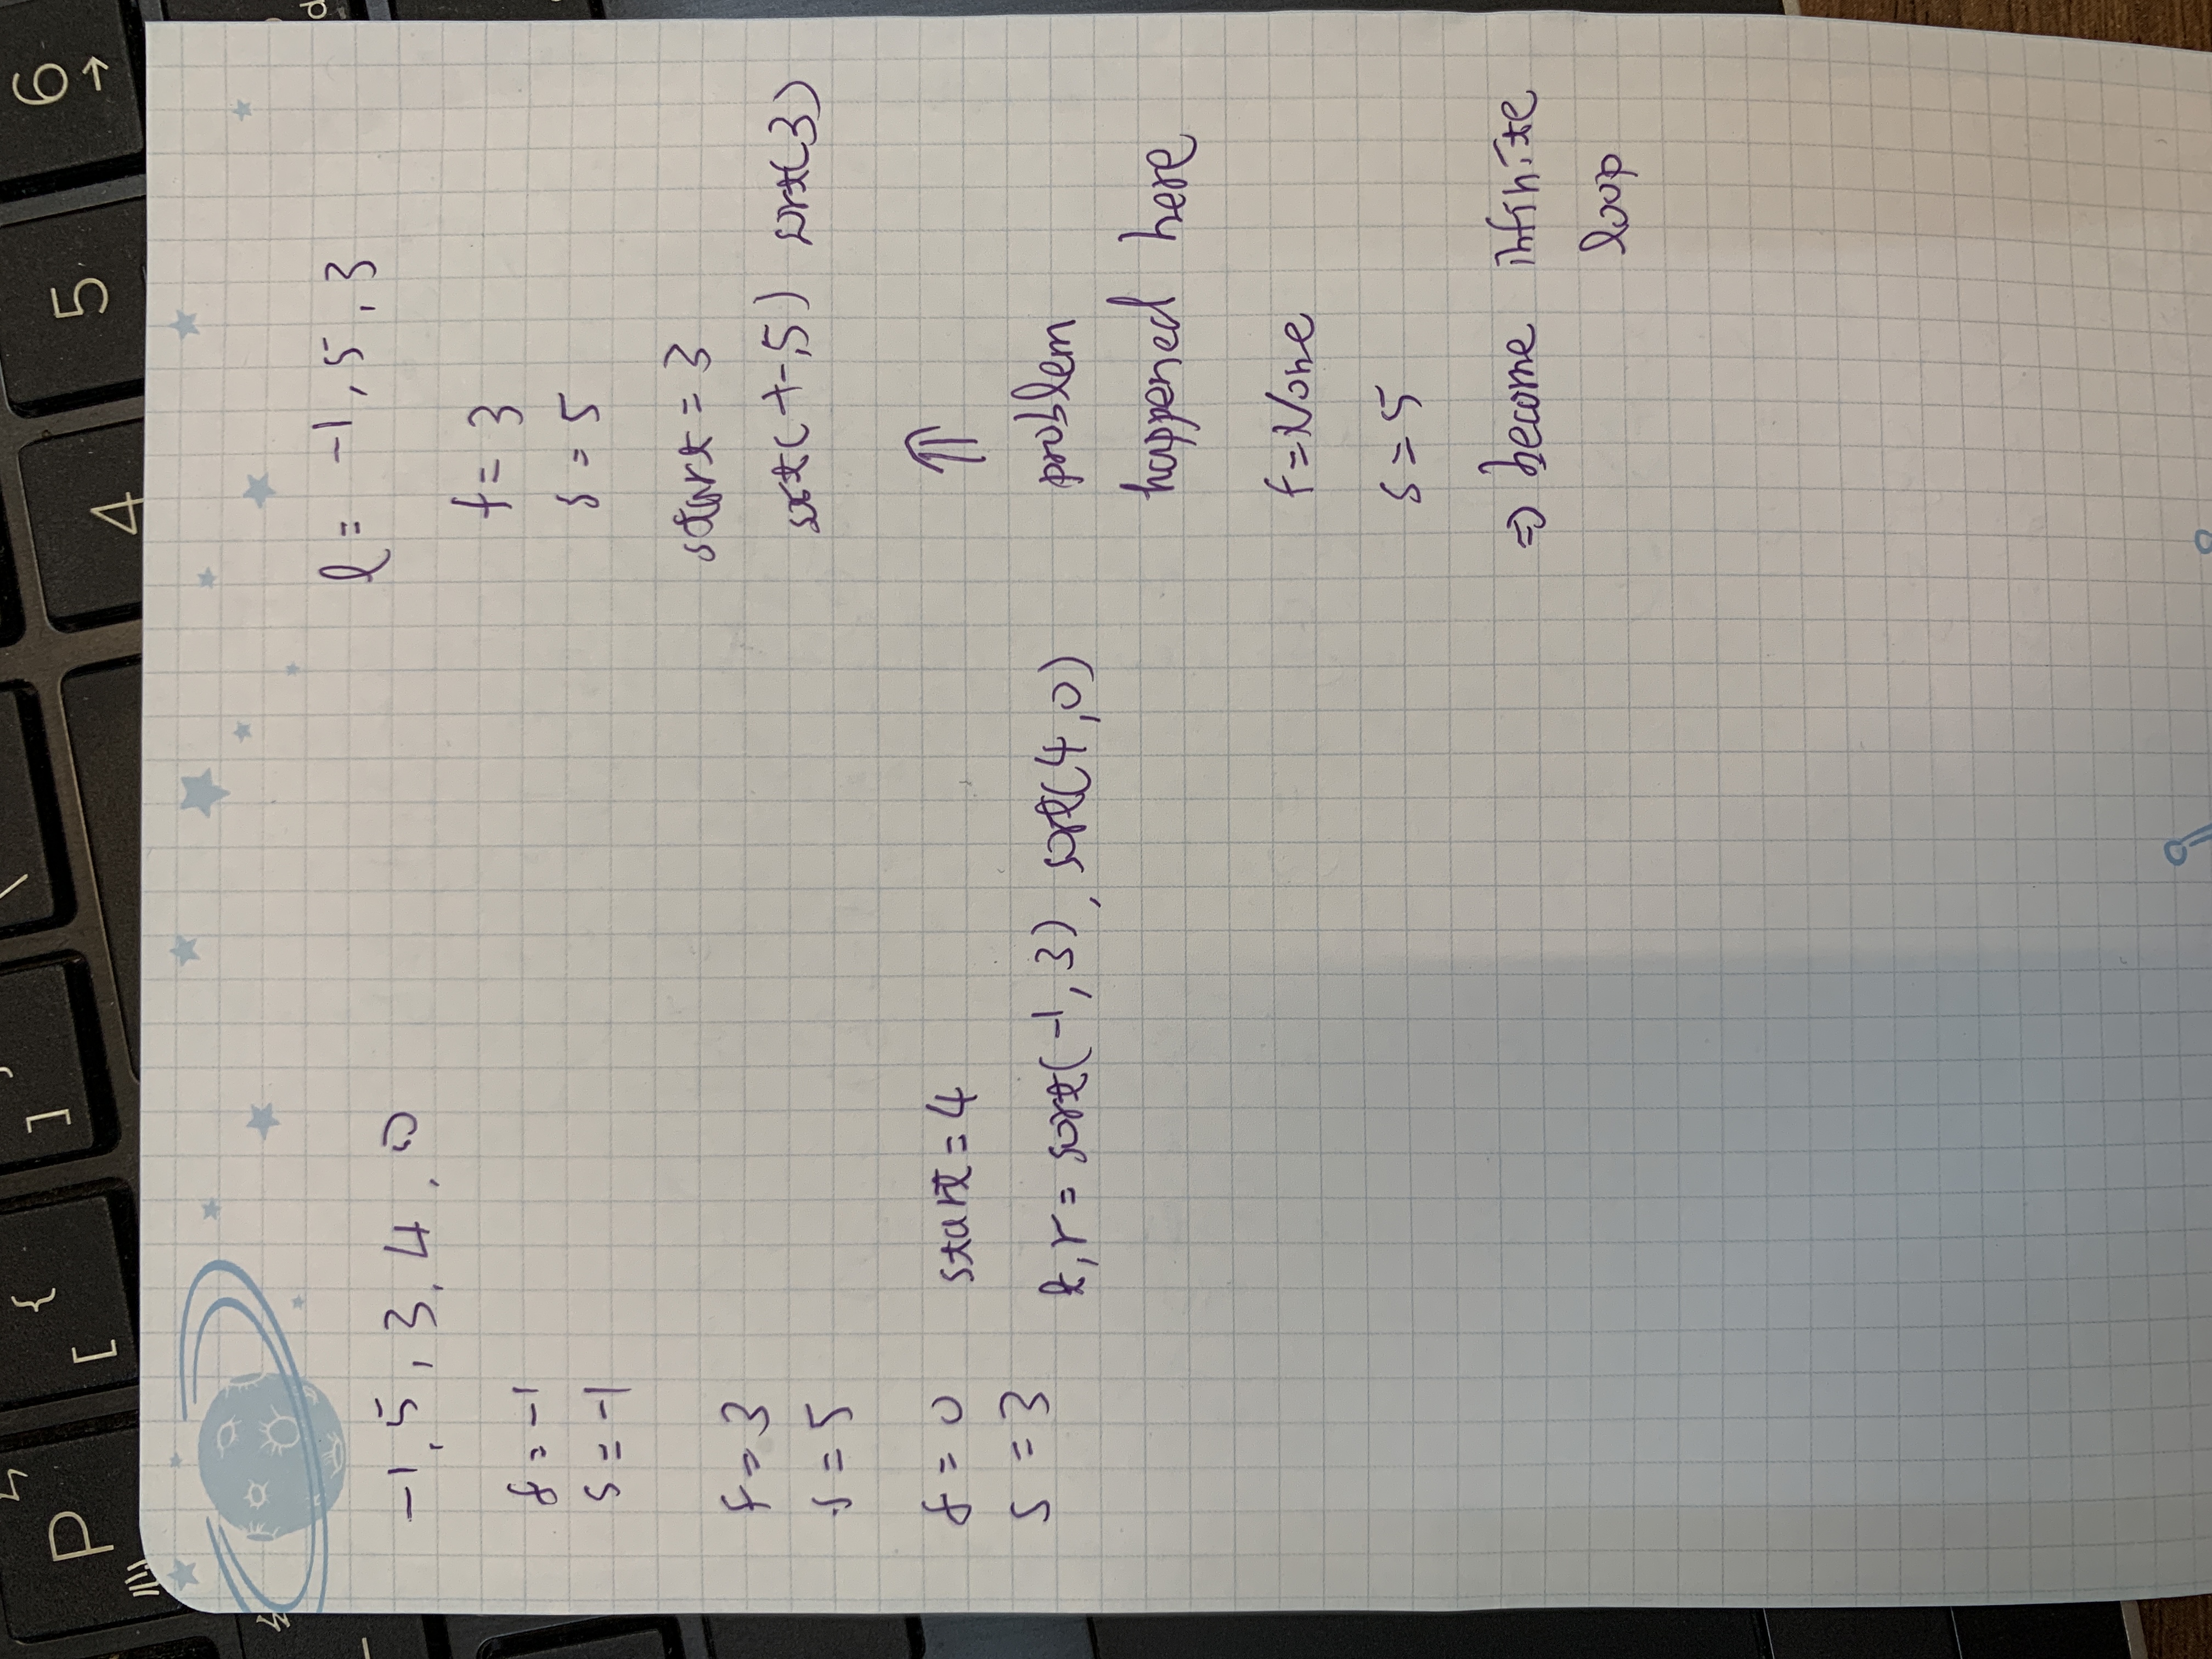 P
{
[
]
\
4
5
6
→
-1, 5, 3, 4, 0
f = -1
s = -1
f = 3
s = 5
f = 0
start = 4
s = 3
l, r = sort(-1, 3), sort(4, 0)
l = -1, 5, 3
f = 3
s = 5
start = 3
sort( , 5) sort(3)
⇑
problem
happened here
f = None
s = 5
⇒ become infinite
loop